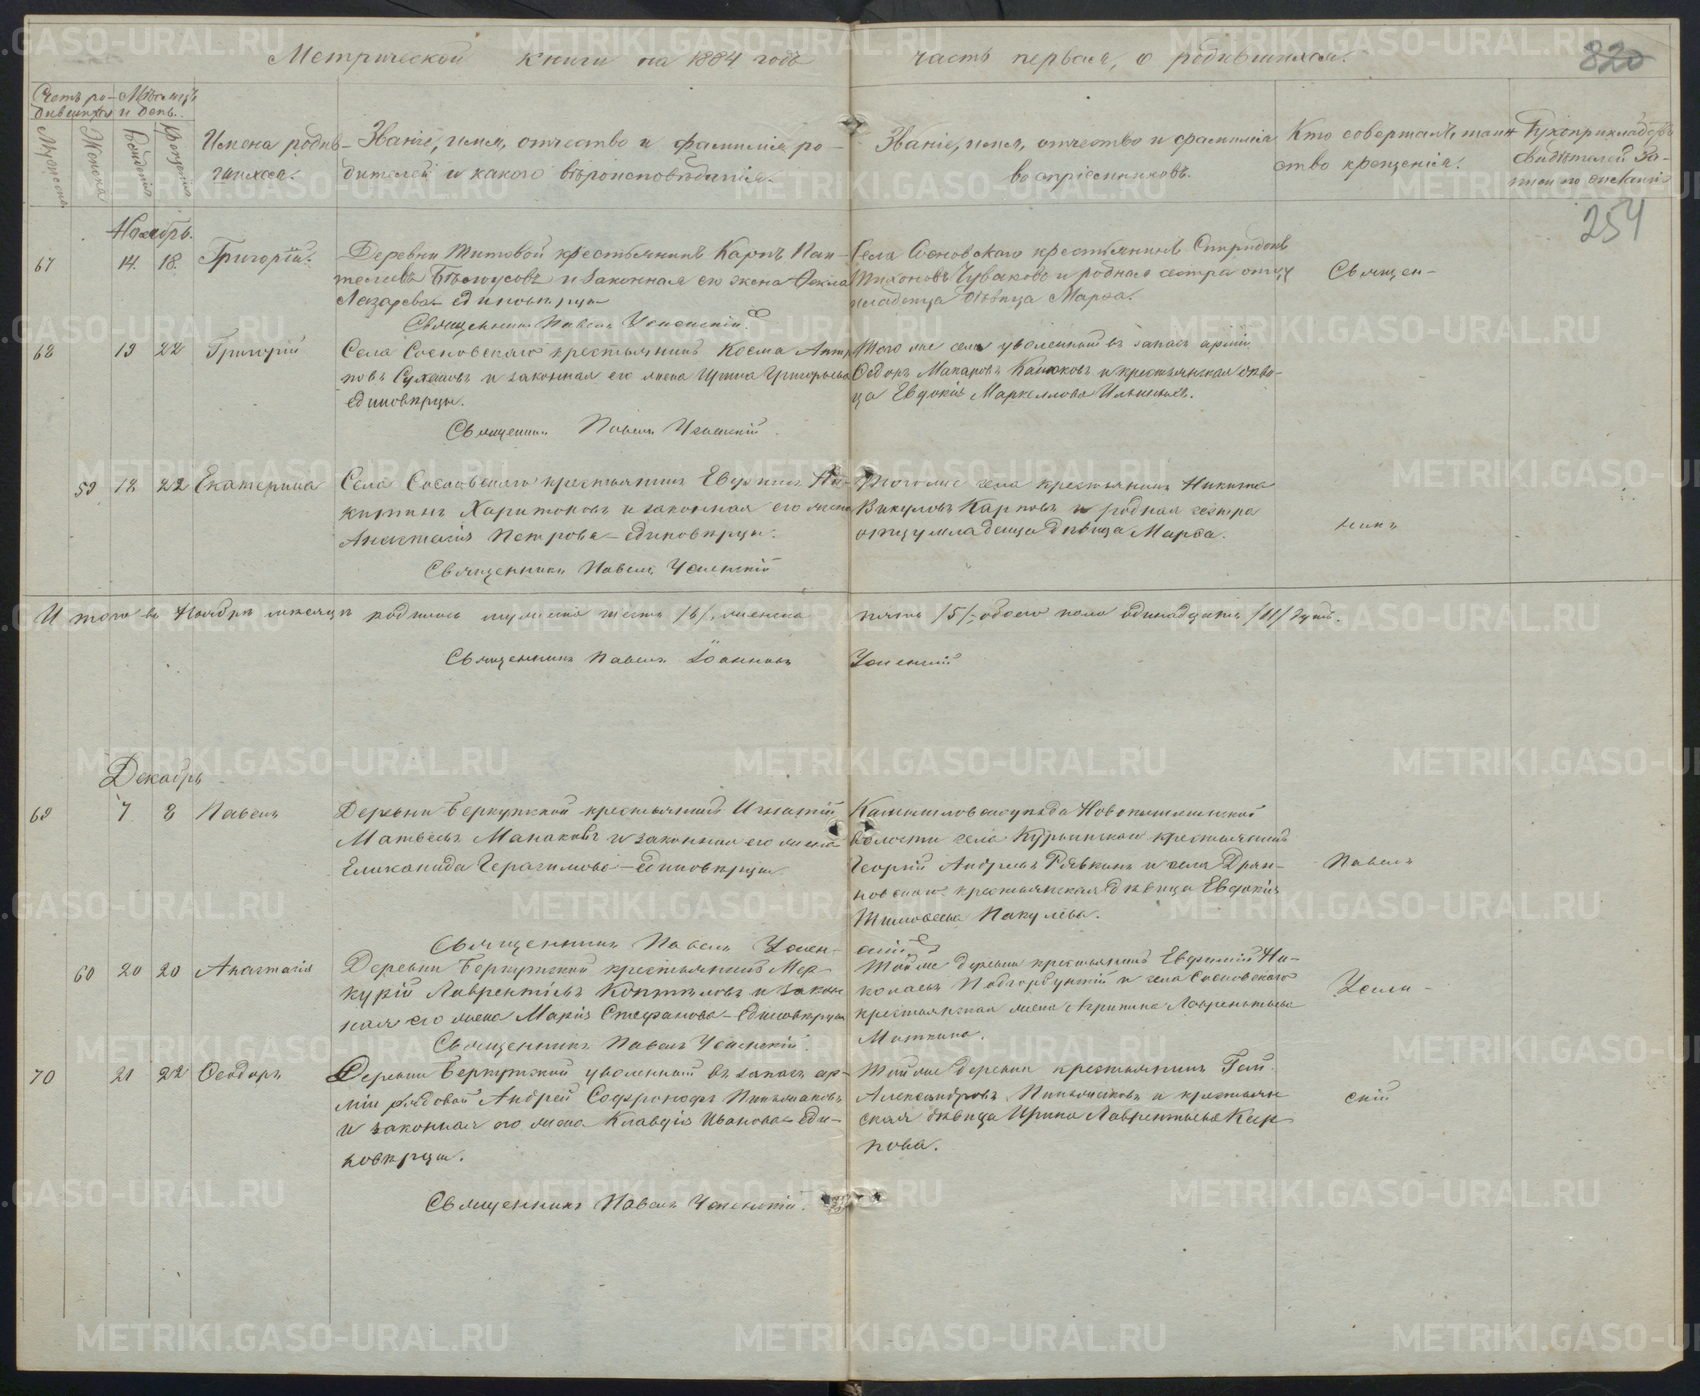 Метрической книги на 1884 годъ часть первая, о родившихся.
820
Счетъ ро- Мѣсяцъ
дившихся и день.
Мужеска
Женска
Рожденія
Крещенія
Имена родив-
шихся.
Званіе, имя, отчество и фамилія ро-
дителей и какого вѣроисповѣданія.
Званіе, имя, отчество и фамилія
воспріемниковъ.
Кто совершалъ таин-
ство крещенія.
Рукоприкладство
свидѣтелей за-
писи по желанію
254
Ноябрь.
67 14. 18. Григорій.
Деревни Титовой крестьянинъ Карпъ Пан-
телевъ Бѣлоусовъ и законная его жена Ѳекла
Лазарева единовѣрцы
Священникъ Павелъ Успенскій.
Села Сосновскаго крестьянинъ Спиридонъ
Тихоновъ Чуваковъ и родная сестра отцу
младенца дѣвица Марѳа.
Священ-
68 19 22 Григорій
Села Сосновскаго крестьянинъ Косма
повъ и законная его жена Ирина Григорьева
единовѣрцы.
Священникъ Павелъ Успенскій.
Того же села уволенный въ запасъ арміи
Макаровъ и крестьянская дѣви-
ца Евдокія Маркеллова
59 12 22 Екатерина
Села Сосновскаго крестьянинъ Евфимій Ни-
китинъ Харитоновъ и законная его жена
Анастасія Петрова - единовѣрцы.
Священникъ Павелъ Успенскій
Того же села крестьянинъ Никита
Викуловъ Карповъ и родная сестра
отцу младенца дѣвица Марѳа.
никъ
Итого въ Ноябрѣ мѣсяцѣ родилось мужеска шесть /6/, женска пять /5/, обоего пола одинадцать /11/ душъ.
Священникъ Павелъ Іоанновъ Успенскій
Декабрь
69 7 8 Павелъ
Деревни Беркутской крестьянинъ Игнатій
Матвеевъ Манаковъ и законная его жена
Еликанида Герасимова - единовѣрцы
Священникъ Павелъ Успен-
скій
Камышловскаго уѣзда Новопышминской
волости села Курьинскаго крестьянинъ
Георгій Андреевъ Рявкинъ и села Дрян-
новскаго крестьянская дѣвица Евдокія
Тимофеева Пакулева.
Павелъ
60 20 20 Анастасія
Деревни Беркутской крестьянинъ Мер-
курій Лаврентіевъ Коптяловъ и закон-
ная его жена Марія Стефанова - единовѣрцы
Священникъ Павелъ Успенскій.
Той же деревни крестьянинъ Евфимій Ни-
колаевъ Подгорбунскій и села Сосновскаго
крестьянская жена Агрипина Лаврентьева
Мяткина.
Успен-
70 21 22 Ѳеодоръ
Деревни Беркутской уволенный въ запасъ ар-
міи рядовой Андрей Софроновъ Пиньжаковъ
и законная его жена Клавдія Иванова - еди-
новѣрцы.
Священникъ Павелъ Успенскій.
Той же деревни крестьянинъ Гай
Александровъ Пиньжаковъ и крестьян-
ская дѣвица Ирина Лаврентьева Кар-
пова.
скій
METRIKI.GASO-URAL.RU